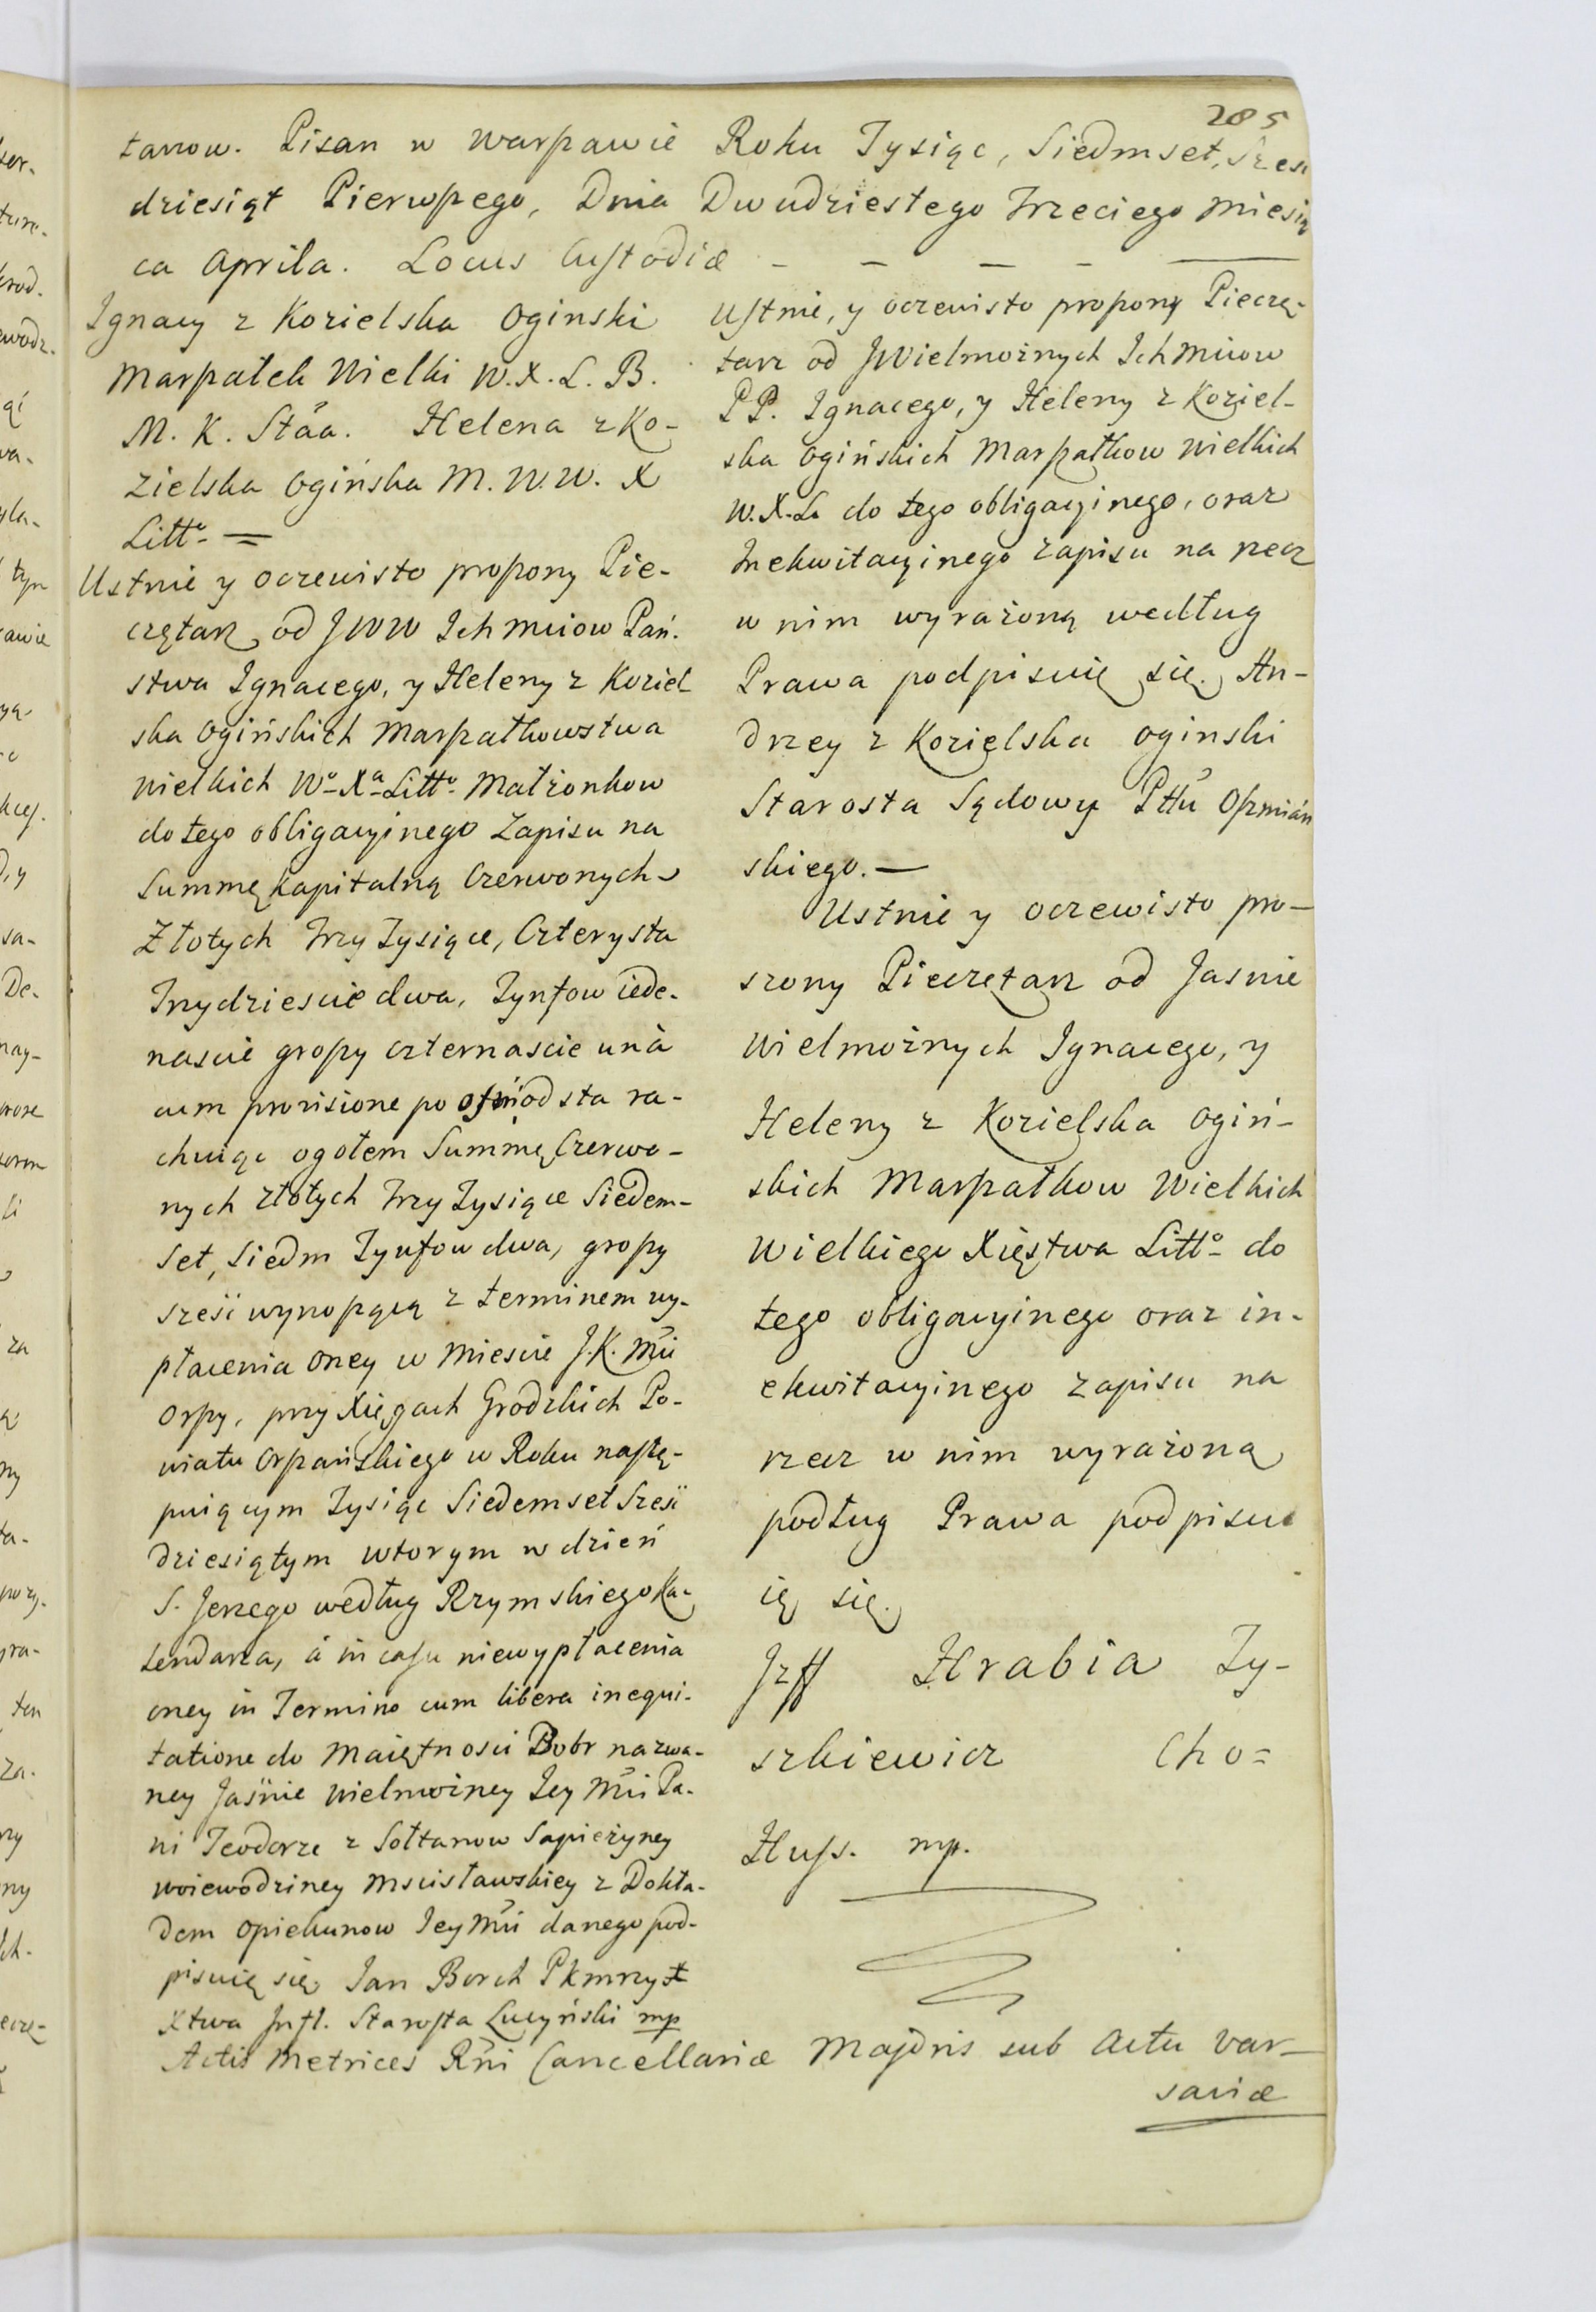 285
tarzow. Pisan w Warszawie Roku Tysiąc, Siedmset, Szesc
dziesiąt Pierwszego, Dnia Dwudziestego Trzeciego Miesią
ca Aprila. Locus Custodiæ - - - - -
Ignacy z Kozielska Oginski
Marszałek Wielki W. X. L. B.
M. K. Stãa. Helena z Ko-
zielska Ogińska M. W. W. X
Litto =
Ustnie y oczewisto proszony Pie-
czętarz od JWW Ich Mciow Pań-
stwa Ignacego, y Heleny z Koziel
ska Ogińskich Marszałkowstwa
Wielkich Wo Xa Litto Małżonkow
do tego obligacyinego Zapisu na
Summę kapitalną Czerwonych
Złotych Trzy Tysiące, Czterysta
Trzydziescie dwa, Tynfow iede-
nascie groszy czternascie una
cum provisione po ośm od sta ra-
chuiąc ogołem Summę Czerwo-
nych złotych Trzy Tysiące Siedem-
set, Siedm Tynfow dwa, groszy
sześć wynoszącą z terminem wy-
płacenia oney w Miescie J. K. Mći
Orszy, przy Xięgach Grodzkich Po-
wiatu Orszańskiego w Roku nastę-
puiącym Tysiąc Siedemset Sześć
dziesiątym wtorym w dzień
S. Jerzego według Rzymskiego Ka-
lendarza, á in casu niewypłacenia
oney in Termino cum libera inequi-
tatione do Maiętnosci Bobr nazwa-
ney Jaśnie Wielmożney Jey Mći Pa-
ni Teodorze z Sołtanow Sapieżyney
Woiewodziney Mscisławskiey z Dokła-
dem Opiekunow Jey Mći danego pod-
pisuię się Jan Borch Pkmrzy
Xtwa Infl. Starosta Lucyński mp
Ustnie, y oczewisto proszony Pieczę-
tarz od JWielmożnych Ich Mciow
PP. Ignacego, y Heleny z Koziel-
ska Ogińskich Marszałkow Wielkich
W. X. L. do tego obligacyinego, oraz
Inekwitacyinego zapisu na rzecz
w nim wyrażoną według
Prawa podpisuię się. An-
drzey z Kozielska Oginski
Starosta Sądowy Pttu Oszmiań
skiego. —
Ustnie y oczewisto pro-
szony Pieczętarz od Jasnie
Wielmożnych Ignacego, y
Heleny z Kozielska Ogiń-
skich Marszałkow Wielkich
Wielkiego Xięstwa Litto do
tego obligacyinego oraz in-
ekwitacyinego zapisu na
rzecz w nim wyrażoną
podług Prawa podpisu
ię się.
Jzff Hrabia Ty-
szkiewicz Cho=
Huss. mp.
Actis Metrices Rñi Cancellariæ Majoris sub Actu Var-
saviæ